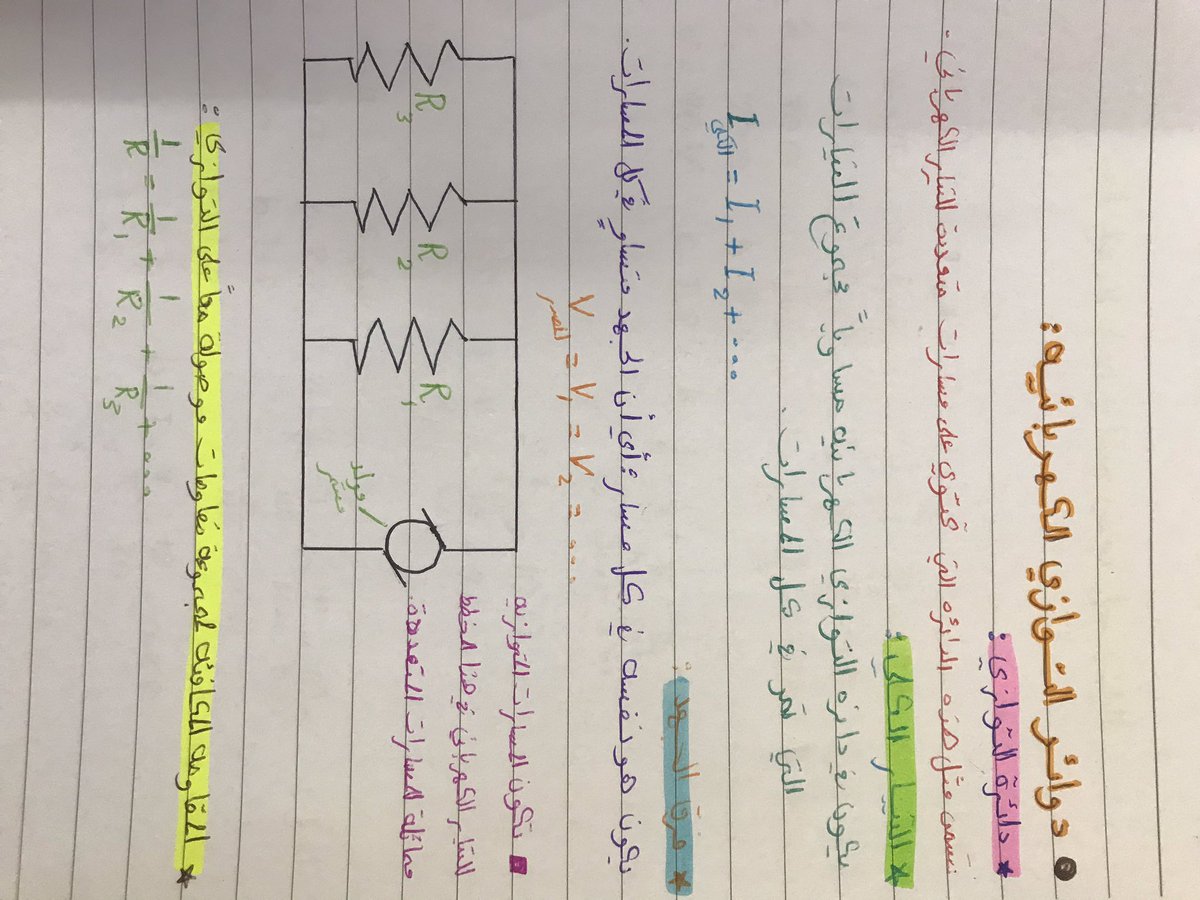 دوائر التوازي الكهربائيه:
دائرة التوازي:
تسمى مثل هذه الدائره التي تحتوي على مسارات متعددة للتيار الكهربائي..
التيار الكلي:
يكون في دائره التوازي الكهربائيه مساوياً مجموع التيارات
التي تمر في كل المسارات.
I الكلي = I1 + I2 + ...
فرق الجهد:
يكون هو نفسه في كل مسار، أي أن الجهد متساوٍ في كل المسارات.
V المصدر = V1 = V2 = ...
تكون المسارات المتوازيه
للتيار الكهربائي في هذا المخطط
مماثلة للمسارات المتعددة.
مولد
R1
R2
R3
المقاومه المكافئه لمجموعة مقاومات موصولة معاً على التوازي:
1/R = 1/R1 + 1/R2 + 1/R3 + ...